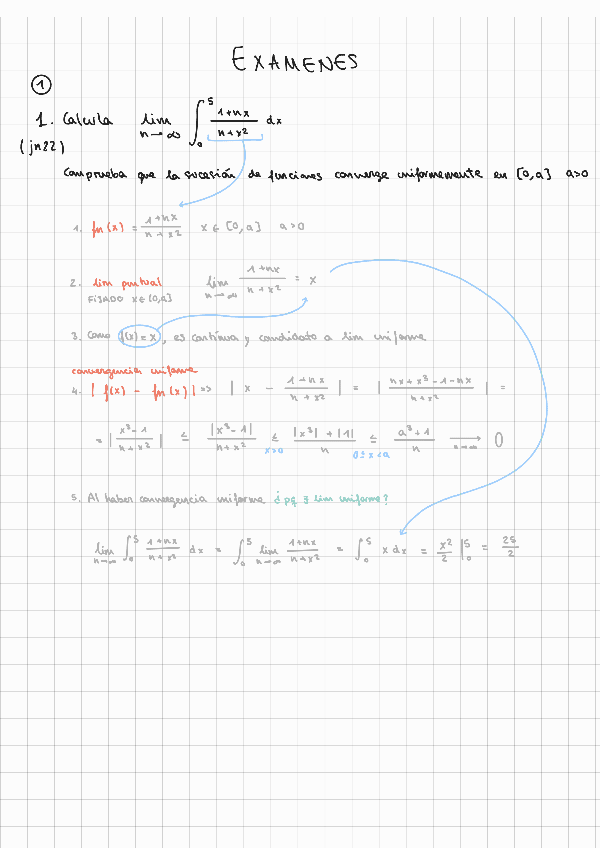 EXAMENES
1
1. Calcula lim n→∞ ∫₀⁵ (1+nx)/(n+x²) dx
(jn22)
Comprueba que la sucesión de funciones converge uniformemente en [0,a] a>0
1. fn(x) = (1+nx)/(n+x²) x ∈ [0,a] a>0
2. lim puntual lim n→∞ (1+nx)/(n+x²) = x
FIJADO x∈[0,a]
3. Como f(x)=x, es continua y candidato a lim uniforme
convergencia uniforme
4. | f(x) - fn(x) | => | x - (1+nx)/(n+x²) | = | (nx+x³-1-nx)/(n+x²) | =
= | (x³-1)/(n+x²) | ≤ |x³-1|/(n+x²) ≤ (|x³|+|1|)/n ≤ (a³+1)/n → n→∞ 0
x>0 0≤x<a
5. Al haber convergencia uniforme ¿pq ∃ lim uniforme?
lim n→∞ ∫₀⁵ (1+nx)/(n+x²) dx = ∫₀⁵ lim n→∞ (1+nx)/(n+x²) = ∫₀⁵ x dx = x²/2 |₀⁵ = 25/2